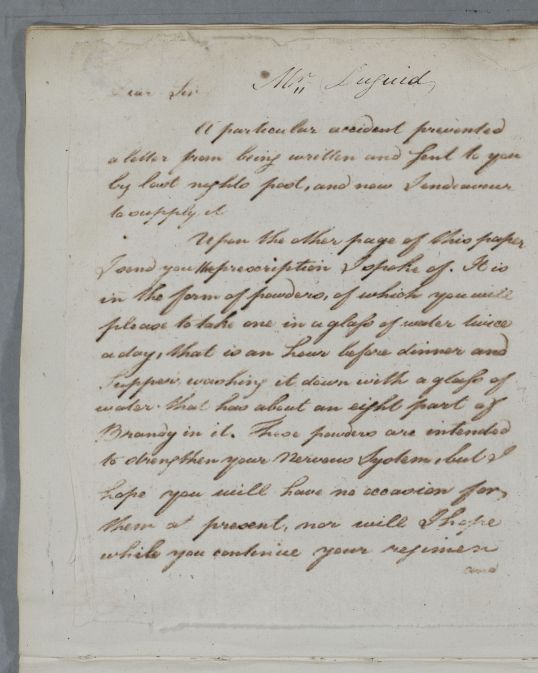 Mr. Duguid
Dear Sir
A particular accident prevented
a letter from being written and sent to you
by last nights post, and now I endeavour
to supply it
Upon the other page of this paper
I send you the prescription I spoke of. It is
in the form of powders, of which you will
please to take one in a glass of water twice
a day, that is an hour before dinner and
Supper, washing it down with a glass of
water that has about an eight part of
Brandy in it. These powders are intended
to strengthen your Nervous System, but I
hope you will have no occasion for
them at present, nor will I hope
while you continue your regimen
and